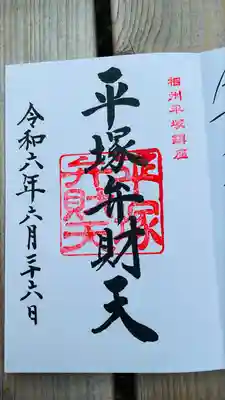 相州平塚鎮座
平塚弁財天
平塚
弁財天
令和六年六月二十六日